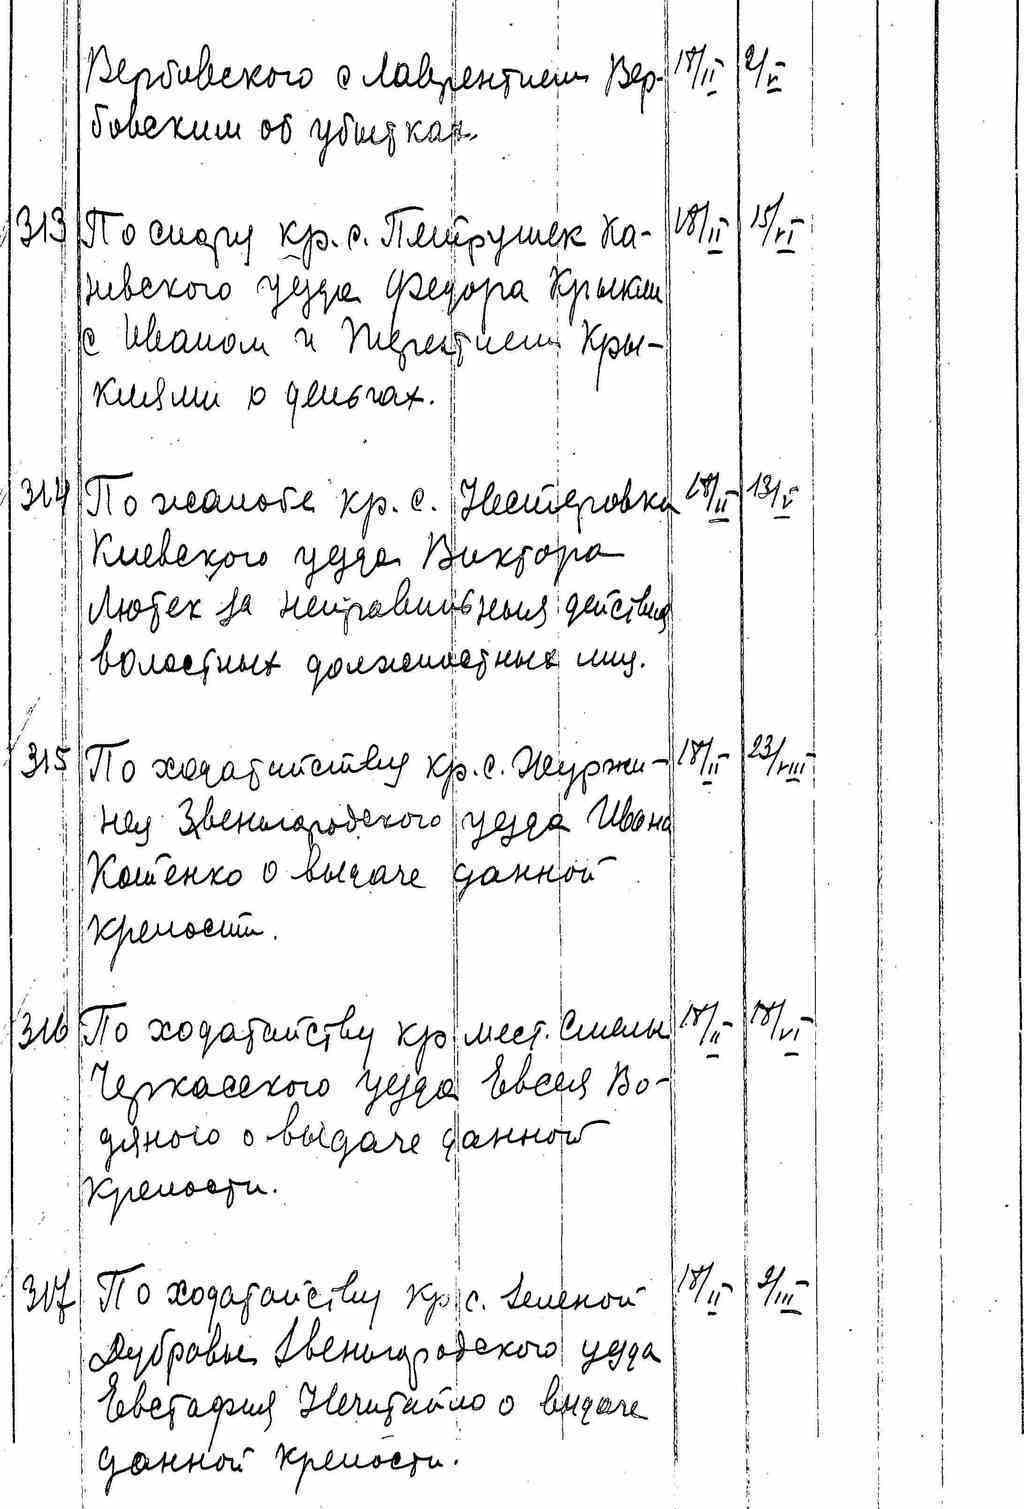 Вербовского с Лаврентием Вер- 18/II 2/V
бовским об убытках.
313 По спору кр. с. Петрушек Ка- 18/II 15/VI
невского уезда Федора Крыкли
с Иваном и Терентием Кры-
клями о деньгах.
314 По жалобе кр. с. Нестеровки 18/II 13/V
Киевского уезда Виктора
Лютек за неправильныя действия
волостных должностных лиц.
315 По ходатайству кр. с. Журжи- 18/II 23/VIII
нец Звенигородского уезда Ивана
Костенко о выдаче данной
крепости.
316 По ходатайству кр. мест. Смелы 18/II 18/VI
Черкасского уезда Евсея Во-
дяного о выдаче данной
крепости.
317 По ходатайству кр. с. Зеленой 18/II 9/III
Дубровы Звенигородского уезда
Евстафия Нечитайло о выдаче
данной крепости.